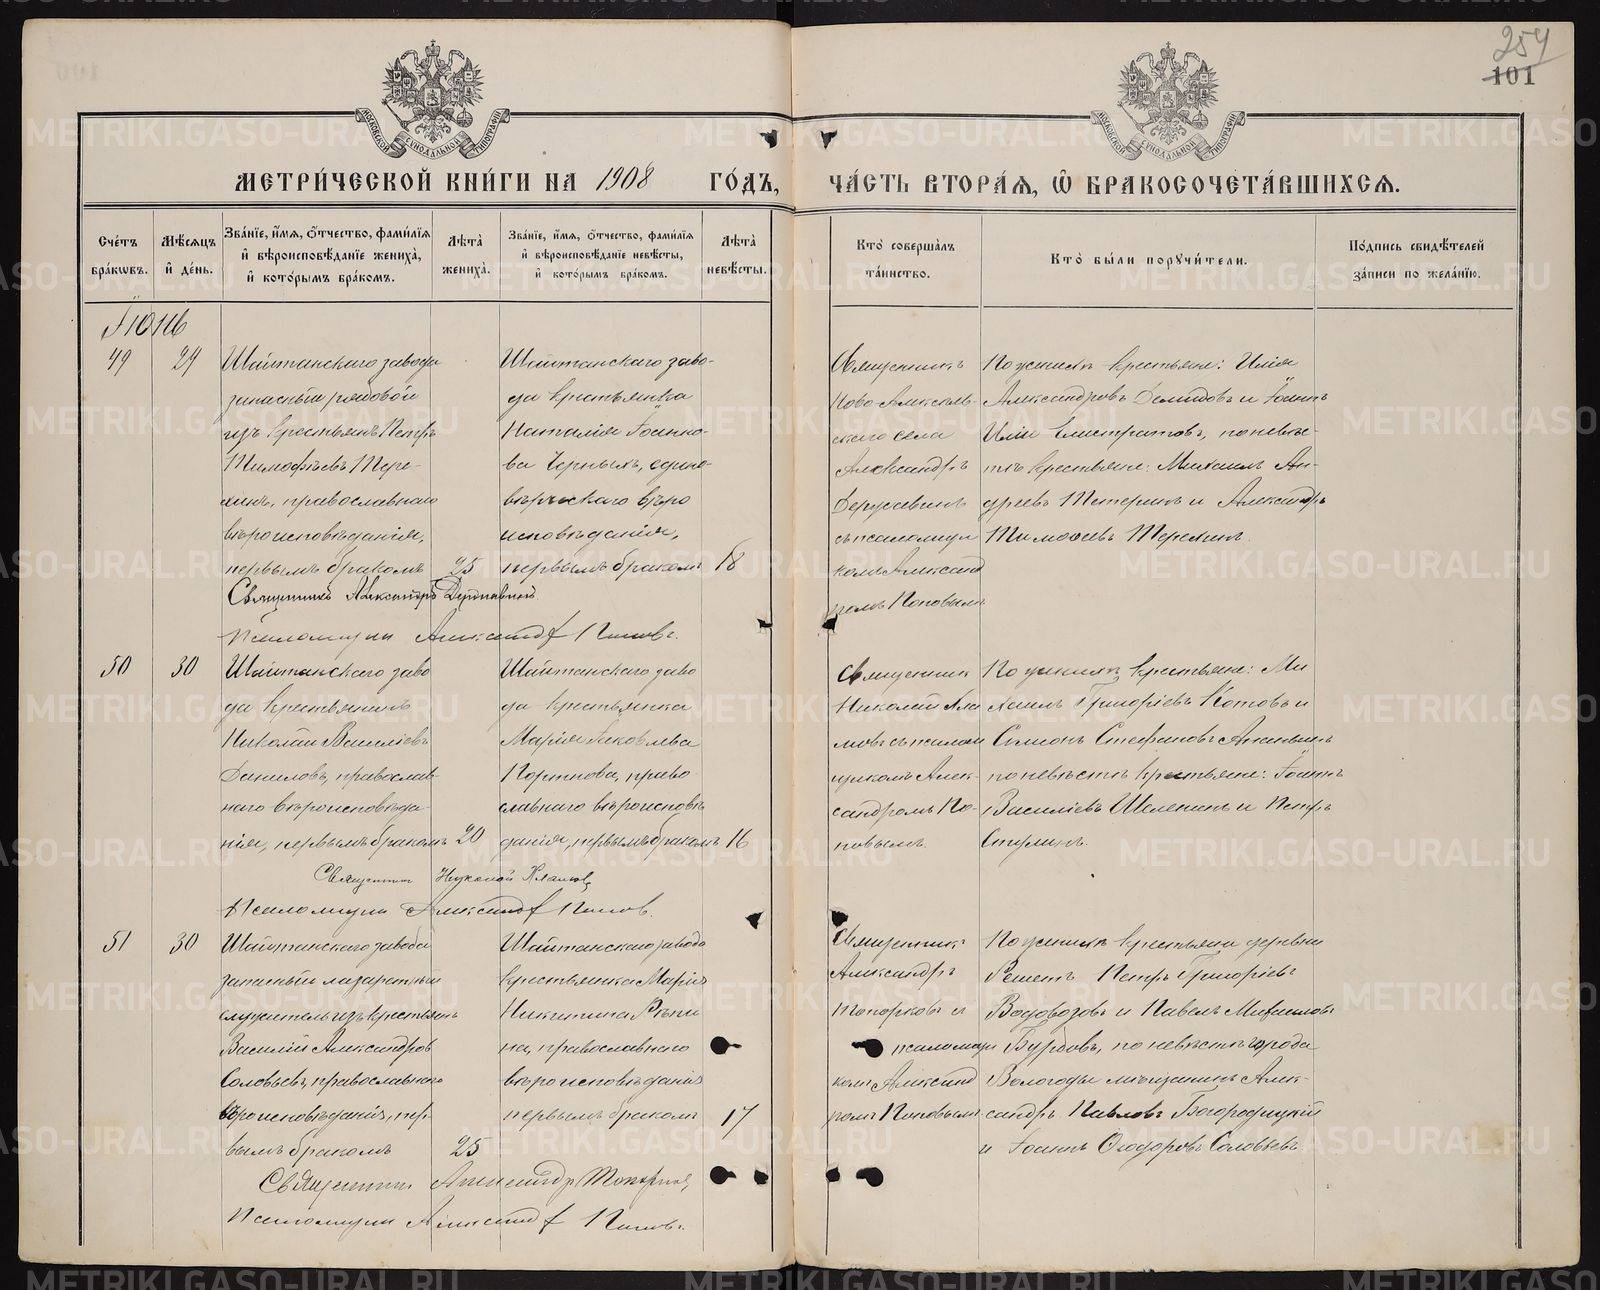 259
101
МЕТРИ́ЧЕСКОЙ КНИ́ГИ НА 1908 ГО́ДЪ,
ЧА́СТЬ ВТОРА́Я, Ѡ БРАКОСОЧЕТА́ВШИХСЯ.
Сче́тъ бра́кѡвъ.
Мѣ́сяцъ и де́нь.
Зва́нїе, и́мя, о́тчество, фами́лїя и вѣроисповѣ́данїе жениха̀, и кото́рымъ бра́комъ.
Лѣта̀ жениха̀.
Зва́нїе, и́мя, о́тчество, фами́лїя и вѣроисповѣ́данїе невѣ́сты, и кото́рымъ бра́комъ.
Лѣта̀ невѣ́сты.
Кто̀ соверша́лъ та́инство.
Кто̀ бы́ли поручи́тели.
По́дпись свидѣ́телей за́писи по жела́нїю.
Іюнь
49
29
Шайтанскаго завода
запасный рядовой
изъ крестьянъ Петръ
Тимофѣевъ Тере-
хинъ, православнаго
вѣроисповѣданія,
первымъ бракомъ
25
Шайтанскаго заво-
да крестьянка
Наталия Іоанно-
ва Черныхъ, едино-
вѣрческаго вѣро
исповѣданія,
первымъ бракомъ
18
Священникъ
Ново Алексѣев-
скаго села
Александръ
Державинъ
съ псаломщи
комъ Александ
ромъ Поповымъ
По женихѣ крестьяне: Илія
Александровъ Демидовъ и Іоаннъ
Иліи Елистратовъ, по невѣс-
тѣ крестьяне: Михаилъ Ан-
дреевъ Тетеринъ и Александръ
Тимоѳеевъ Терехинъ.
Священникъ Александръ Державинъ.
Псаломщикъ Александръ Поповъ.
50
30
Шайтанскаго заво
да крестьянинъ
Николай Василіевъ
Даниловъ, православ-
наго вѣроисповѣда-
нія, первымъ бракомъ
20
Шайтанскаго заво
да крестьянка
Марія Іаковлева
Коринова, право-
славнаго вѣроисповѣ
данія, первымъ бракомъ
16
Священникъ
Николай Кла
мовъ съ псалом
щикомъ Алек-
сандромъ По-
повымъ.
По женихѣ крестьяне: Ми
хаилъ Григоріевъ Котовъ и
Симонъ Стефановъ Ананьинъ
по невѣстѣ крестьяне: Іоаннъ
Василіевъ Шеленинъ и Петръ
Священникъ Николай
Псаломщикъ Александръ Поповъ.
51
30
Шайтанскаго завода
запасный лазаретный
служитель изъ крестьянъ
Василій Александров
Соловьевъ, православнаго
вѣроисповѣданія, пер-
вымъ бракомъ
25
Шайтанскаго завода
крестьянка Марія
Никитина Рѣпи
на, православнаго
вѣроисповѣданія
первымъ бракомъ
17
Священникъ
Александръ
Топорковъ и
псаломщи
комъ Александ
ромъ Поповымъ
По женихѣ крестьяне деревни
Решетъ Петръ Григоріевъ
Водовозовъ и Павелъ Михаиловъ
Бурдовъ, по невѣстѣ города
Вологды мѣщанинъ Алек-
сандръ Павловъ Богородицкій
и Іоаннъ Ѳеодоровъ Соловьевъ.
Священникъ Александръ Топорковъ,
Псаломщикъ Александръ Поповъ.